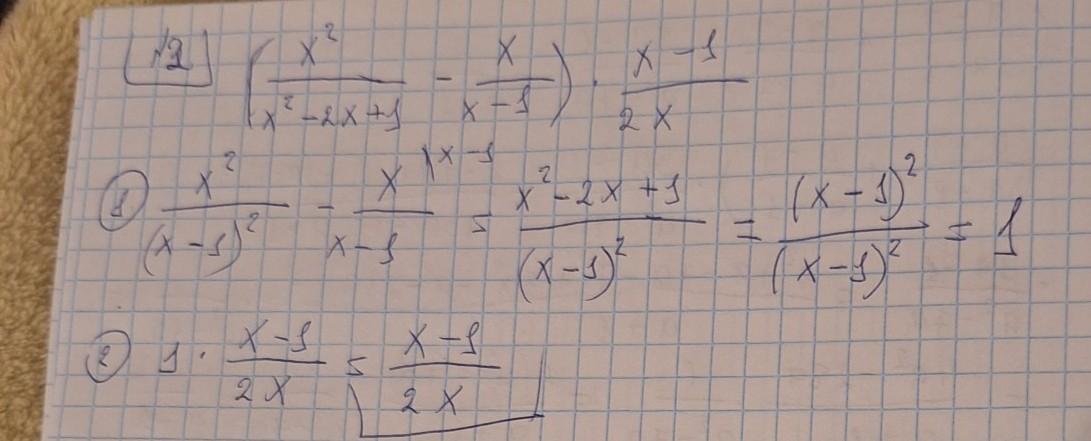 №2 (x²/(x²-2x+1) - x/(x-1)) · (x-1)/(2x)
① x²/(x-1)² - x/(x-1) \x-1 = (x²-2x+1)/(x-1)² = (x-1)²/(x-1)² = 1
② 1 · (x-1)/(2x) = (x-1)/(2x)